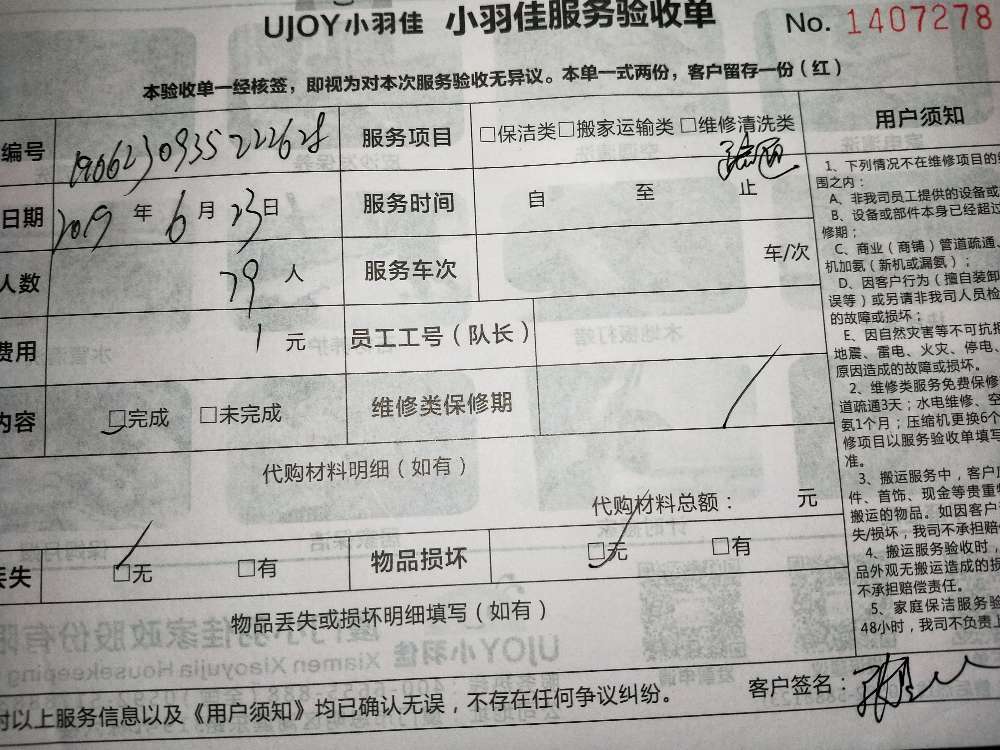 UJOY小羽佳 小羽佳服务验收单 No. 1407278
本验收单一经核签，即视为对本次服务验收无异议。本单一式两份，客户留存一份（红）
编号 190623093522262 服务项目 □保洁类□搬家运输类 □维修清洗类
日期 2019 年 6 月 23 日 服务时间 自 至 止
人数 人 服务车次 车/次
费用 1 元 员工工号（队长）
内容 □完成 □未完成 维修类保修期
代购材料明细（如有）
代购材料总额： 元
丢失 □无 □有 物品损坏 □无 □有
物品丢失或损坏明细填写（如有）
对以上服务信息以及《用户须知》均已确认无误，不存在任何争议纠纷。 客户签名：
用户须知
1、下列情况不在维修项目的
围之内：
A、非我司员工提供的设备或
B、设备或部件本身已经超过
修期；
C、商业（商铺）管道疏通、
机加氨（新机或漏氨）；
D、因客户行为（擅自装卸
误等）或另请非我司人员检
的故障或损坏；
E、因自然灾害等不可抗
地震、雷电、火灾、停电、
原因造成的故障或损坏。
2、维修类服务免费保修
道疏通3天；水电维修、空
氨1个月；压缩机更换6个
修项目以服务验收单填写
准。
3、搬运服务中，客户
件、首饰、现金等贵重
搬运的物品。如因客户
失/损坏，我司不承担赔
4、搬运服务验收时，
品外观无搬运造成的损
不承担赔偿责任。
5、家庭保洁服务验
48小时，我司不负责上